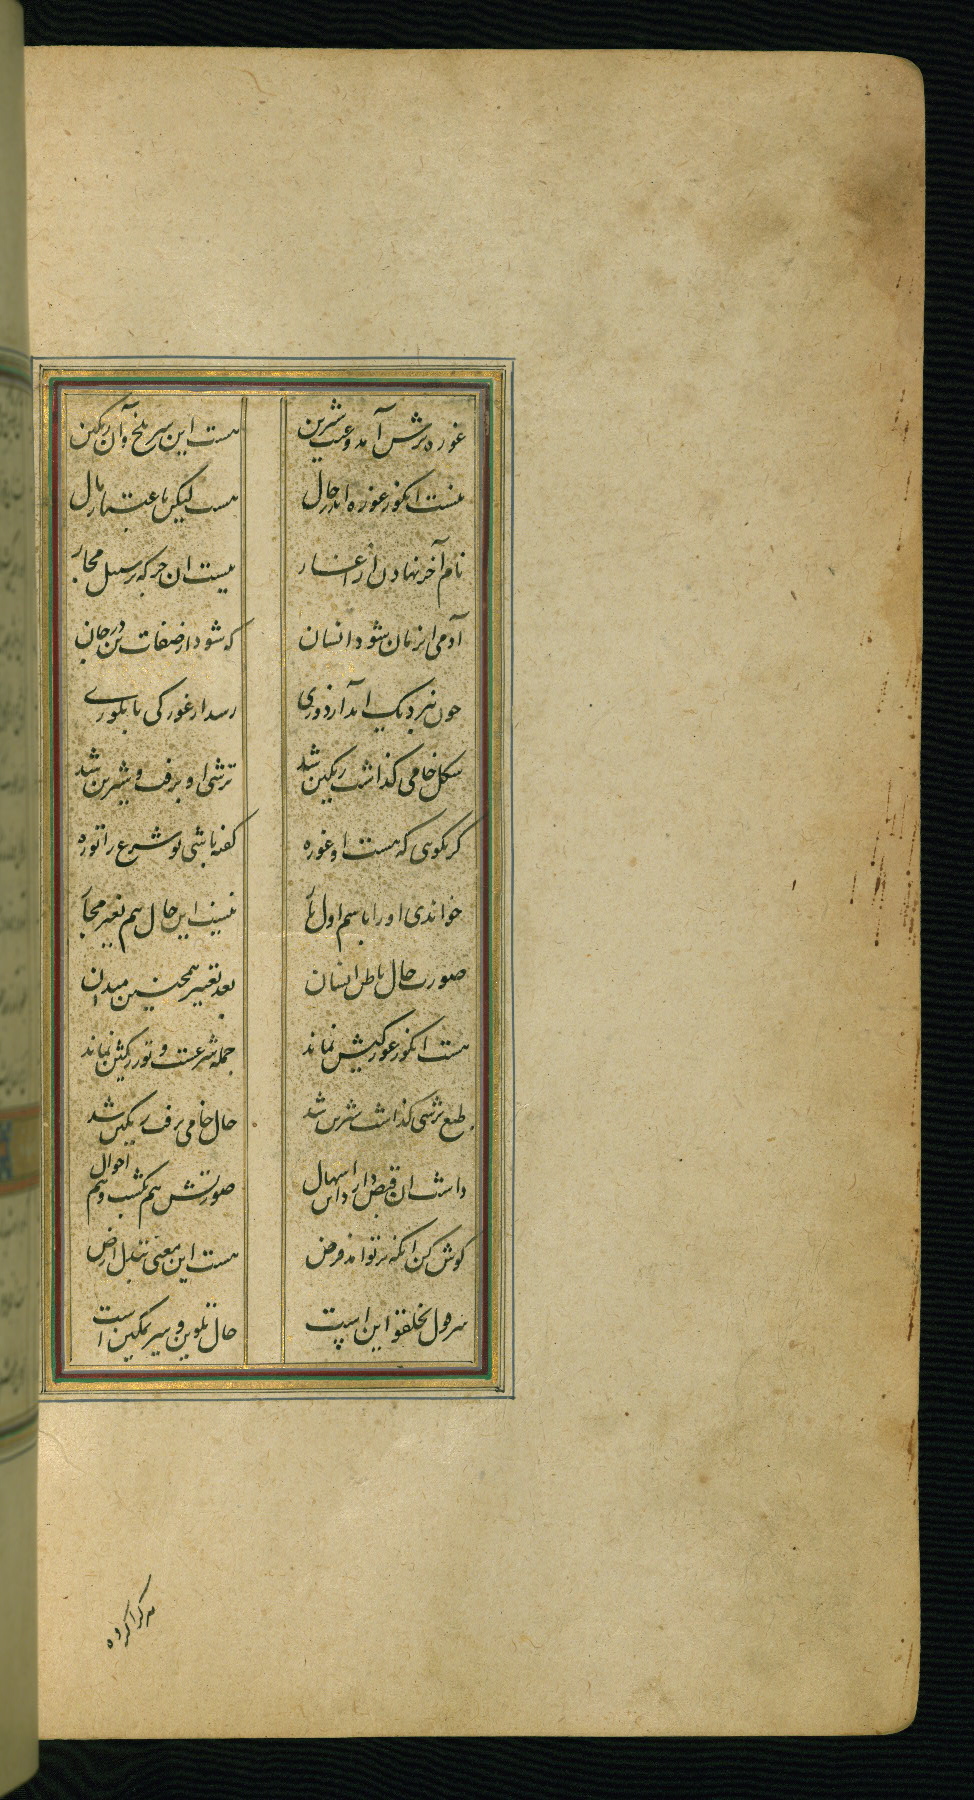 غوره ترش آمد و عنب شیرین هست این سبز تلخ و آن رنگین
نیست انکور غوره اندر حال هست لیکن باعتبار مآل
نام آخر نهادن از آغاز نیست ان جز که بر سبیل مجاز
آدمی انزمان شود انسان که شود از صفات تن در جان
چون بنزدیک اید از دوری رسد از غورکی بانکوری
شکل خامی کذاشت رنکین شد ترشی او برفت و شیرین شد
کر بکوی که هست او غوره کفته باشی تو شرع را توره
خواندی او را باسم اول باز نیست این حال هم بغیر مجاز
صورت حال باطن انسان بعد تغییر همچنین میدان
هست انکور غورکیش نماند جمله شرعست و تورکیش نماند
طبع ترشی کذاشت شیرین شد حال خامی برفت رنکین شد
داشت ان قبض دارد این اسهال صورتش هم بکشت و هم احوال
کوش کن انکه بر تو اند فرض هست این معنی تبدل ارض
سر قول تخلقوا این است حال تلوین و سیر تمکین است
هر کرا کرده